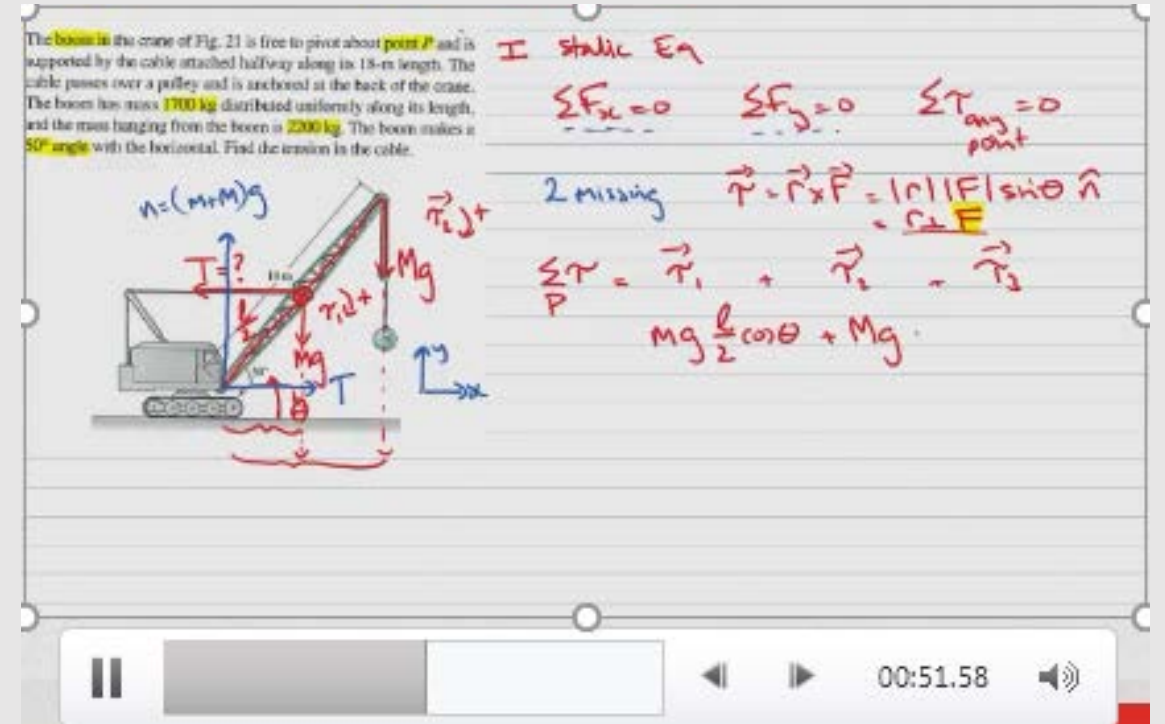 The boom in the crane of Fig. 21 is free to pivot about point P and is
supported by the cable attached halfway along its 18-m length. The
cable passes over a pulley and is anchored at the back of the crane.
The boom has mass 1700 kg distributed uniformly along its length,
and the mass hanging from the boom is 2200 kg. The boom makes a
50° angle with the horizontal. Find the tension in the cable.
I static Eq
ΣFx=0 ΣFy=0 Στ any point =0
2 missing τ⃗ = r⃗×F⃗ = |r||F|sinθ n̂
= r⊥F
n=(m+M)g
τ⃗₂ +
T=?
18 m
Mg
l/2
τ₁ +
mg
50°
T
θ
y
x
Στ P = τ⃗₁ + τ⃗₂ - τ⃗₃
mg l/2 cosθ + Mg
00:51.58